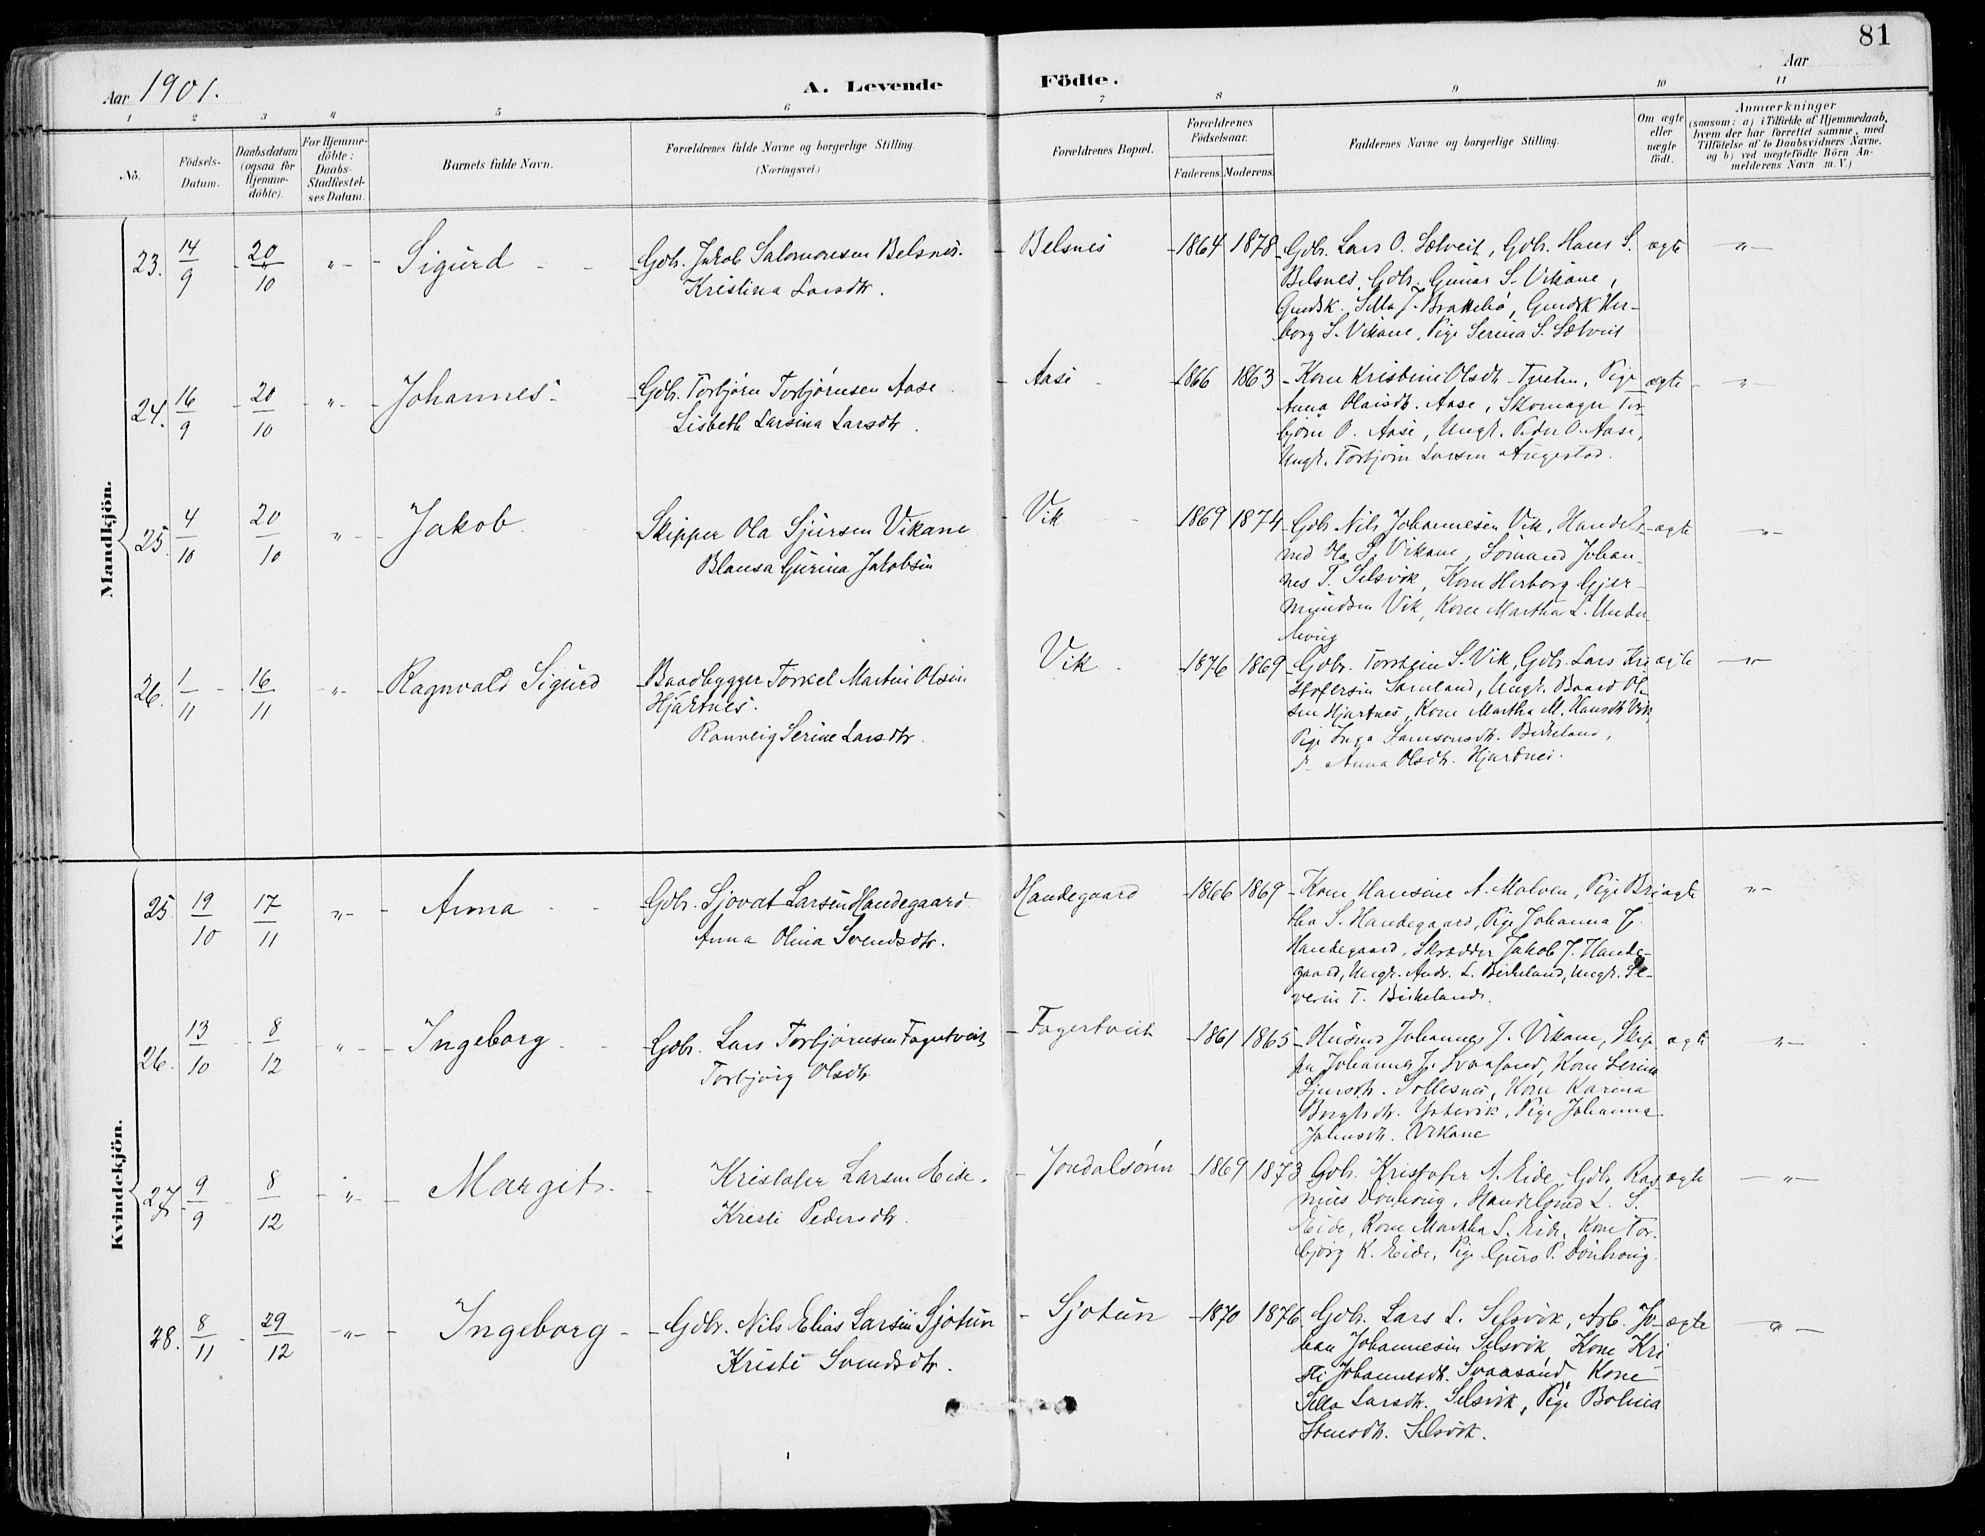 81
Aar 1901.
A. Levende
Födte.
Aar
1 2 3 4 5 6 7 8 9 10 11
No.
Födsels-
Datum.
Daabsdatum
(ogsaa for
Hjemme-
döbte).
For Hjemme-
döbte:
Daabs-
Stadfæstel-
ses Datum.
Barnets fulde Navn.
Forældrenes fulde Navne og borgerlige Stilling.
(Næringsvei.)
Forældrenes Bopæl.
Forældrenes
Födselsaar.
Faderens. Moderens.
Faddernes Navne og borgerlige Stilling.
Om ægte
eller
uægte
födt.
Anmærkninger
(saasom: a) i Tilfælde af Hjemmedaab,
hvem der har forrettet samme, med
Tilföielse af to Daabsvidners Navne,
og b) ved uægtefödte Börn An-
melderens Navn m. V.)
Mandkjön.
23. 14/9 - 20/10 „ Sigurd
Gbr. Jakob Salomonsen Belsnes.
Kristina Larsdtr.
Belsnes
1864 1878
Gbr. Lars O. Sætveit, Gbr. Hans S.
Belsnes, Gbr. Gunar S. Vikane,
Gmdsk. Silla J. Brattebö, Gmdsk Her-
borg S. Vikane, Pige Serina S. Sætveit
ægte „
24. 16/9 - 20/10 „ Johannes
Gbr. Torbjörn Torbjörnsen Aase
Lisbeth Larsina Larsdtr.
Aase
1866 1863
Kone Kristine Olsdtr. Pige
Anna Olaisdtr. Aase, Skomager Tor-
björn O. Aase, Ungk. Peder O. Aase,
Ungk. Torbjörn Larsen Augestad.
ægte „
25. 4/10 20/10 „ Jakob
Skipper Ola Sjursen Vikane
Blansa Gurina Jakobsen
Vik
1869 1874
Gbr Nils Johannesen Vik, Handels-
md Ha. S. Vikane, Sömand Johan-
nes T. Selsvik, Kone Herborg Gjer-
mundsen Vik, Kone Martha L. Under-
haug
ægte „
26. 1/11 - 16/11 „ Ragnvald Sigurd
Baadbygger Torkel Martin Olsen
Hjartnes.
Ranveig Serine Larsdtr.
Vik
1876 1869
Gbr. Torstein S. Vik, Gbr. Lars Kri-
stofersen Samland, Ungk. Baard Ol-
sen Hjartnes, Kone Martha M. Hansdtr Vik,
Pige Inga Samsonsdtr. Birkeland,
d- Anna Olsdtr. Hjartnes.
ægte „
Kvindekjön.
25. 19/10 17/11 „ Anna
Gbr. Sjovat Larsen Handegaard
Anna Olina Svendsdtr.
Handegaard
1866 1869
Kone Hansine A. Molven, Pige Bri-
tha S. Handegaard, Pige Johanna J.
Handegaard, Skrædder Jakob J. Hande-
gaard, Ungk. Andr. L. Birkeland, Ungk. Se-
verin T. Birkeland.
ægte „
26. 13/10 - 8/12 „ Ingeborg
Gbr. Lars Torbjörnsen Fagertveit
Torbjörg Olsdtr.
Fagertveit
1861 1865
Husmd Johannes J. Vikane, Skip-
per Johannes J. Svaasand, Kone Serina
Sjursdtr. Sollesnes, Kone Karina
Johnsdtr. Vikane
Pige Johanna
ægte „
27. 9/9 - 8/12 „ Margit
Kristofer Larsen Eide.
Kristi Pedersdtr.
Jondalsören
1869 1873
Gbr. Kristofer A. Eide, Gbr. Ras-
mus Dönhaug, Handelsmd L. S.
Eide, Kone Martha S. Eide, Kone Tor-
björg K. Eide, Pige Guro P. Dönhaug.
ægte „
28. 8/11 - 29/12 „ Ingeborg
Gbr. Nils Elias Larsen Sjotun
Kristi Svendsdtr.
Sjotun
1870 1876
Gbr. Lars L. Selsvik, Arb. Jo-
han Johannesen Selsvik, Kone Kri-
sti Johannesdtr. Svaasand, Kone
Silla Larsdtr. Selsvik, Pige Bolina
Stensdtr. Selsvik.
ægte „